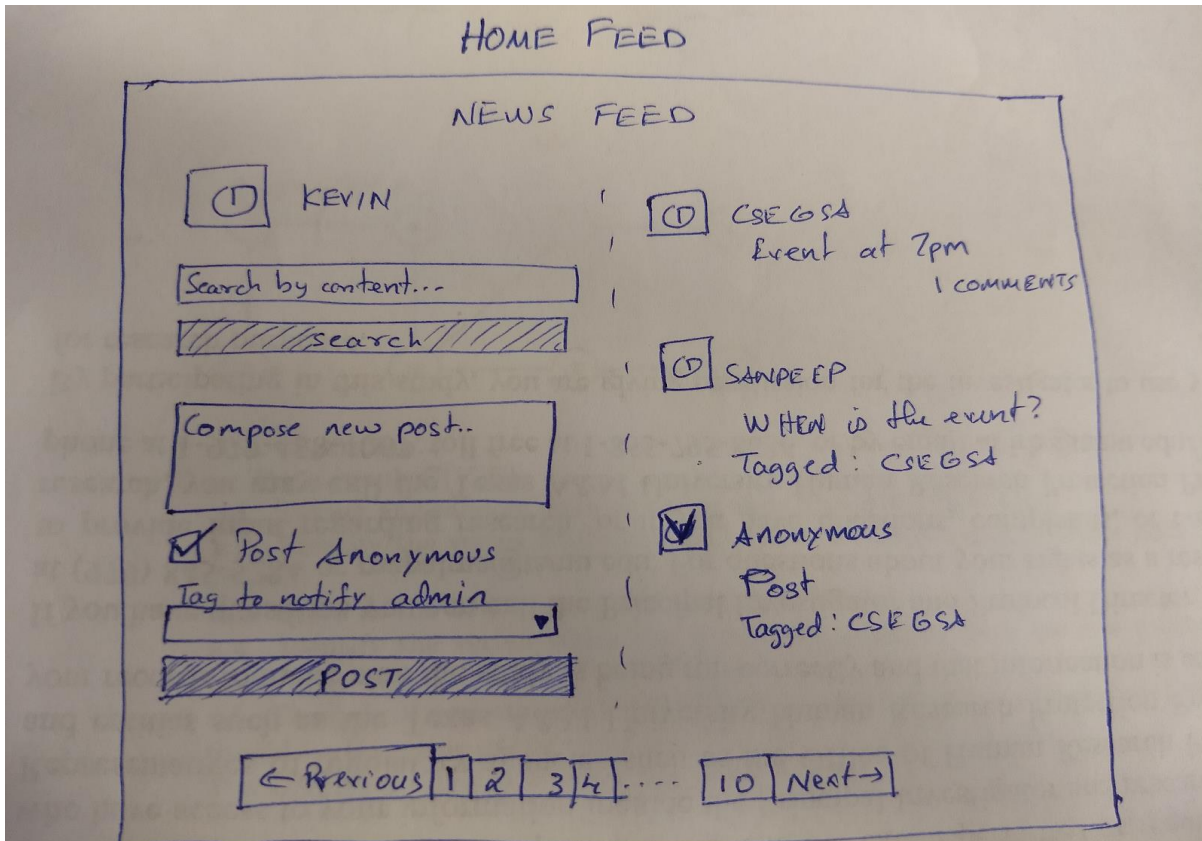 HOME FEED
NEWS FEED
KEVIN
Search by content...
search
Compose new post..
Post Anonymous
Tag to notify admin
POST
CSEGSA
Event at 7pm
1 COMMENTS
SANDEEP
WHEN is the event?
Tagged: CSEGSA
Anonymous
Post
Tagged: CSEGSA
← Previous 1 2 3 4 .... 10 Next →